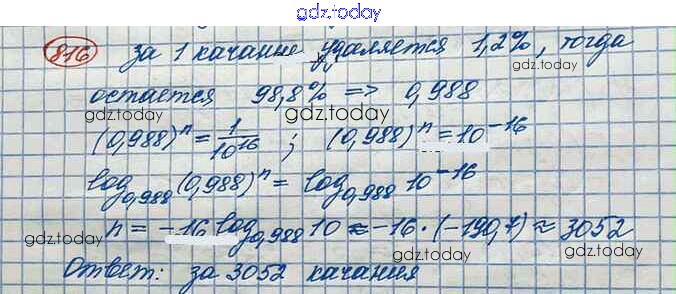 gdz.today
816 за 1 качание удаляется 1,2%, тогда
gdz.today gdz.today
остается 98,8% => 0,988
gdz.today gdz.today
(0,988)ⁿ = 1/10¹⁶ ; (0,988)ⁿ = 10⁻¹⁶
gdz.today
log₀,₉₈₈(0,988)ⁿ = log₀,₉₈₈ 10⁻¹⁶
n = -16 log₀,₉₈₈ 10 ≈ -16 · (-190,7) ≈ 3052
gdz.today gdz.today
Ответ: за 3052 качания
gdz.today